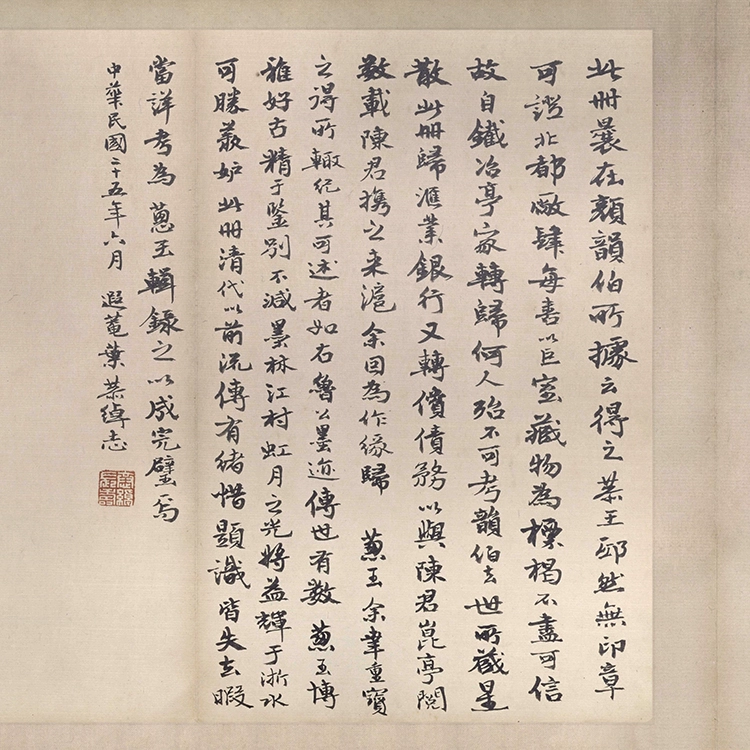 此冊曩在顏韻伯所據云得之某王邸然無印章
可證北都廠肆每喜以巨室藏物為標榜不盡可信
故自鐵冶亭家轉歸何人殆不可考韻伯去世所藏星
散此冊歸滙業銀行又轉償債務以與陳君崑亭閱
數載陳君攜之来滬余因為作緣歸 蔥玉余韋重寶
之得所輙紀其可述者如右魯公墨迹傳世有數 蔥玉博
雅好古精于鑒別不減墨林江村虹月之光將益輝于浙水
可勝羨妒此冊清代以前流傳有緒惜題識皆失去暇
當詳考為蔥玉輯錄之以成完璧焉
中華民國二十五年六月 遐菴葉恭綽志